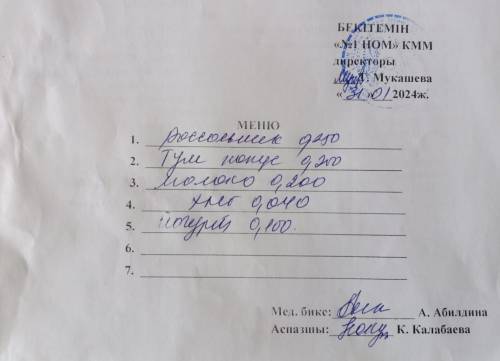 БЕКІТЕМІН
«№1 НОМ» КММ
директоры
Г. Мукашева
«31» 01 2024ж.
МЕНЮ
1. Рассольник 0,250
2. Туш капус 0,200
3. Молоко 0,200
4. хлеб 0,040
5. йогурт 0,100.
6.
7.
Мед. бике: А. Абилдина
Аспазшы: К. Калабаева